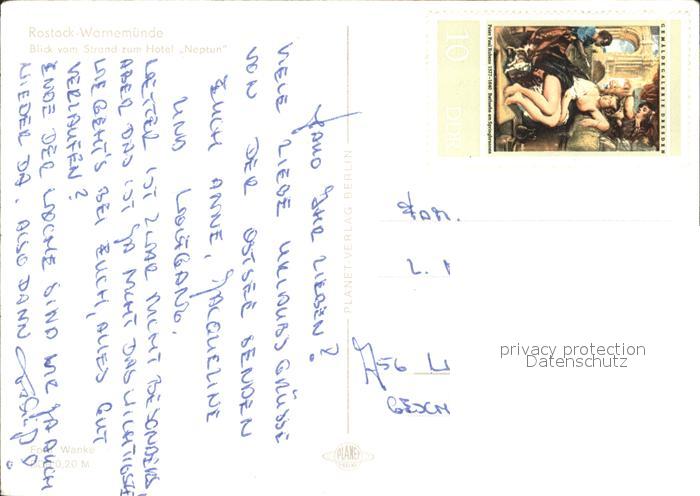 Rostock-Warnemünde
Blick vom Strand zum Hotel „Neptun"
HALLO IHR LIEBEN!
VIELE LIEBE URLAUBSGRÜSSE
VON DER OSTSEE SENDEN
EUCH ANNE, JACQUELINE
UND WOLFGANG.
WETTER IST ZWAR NICHT BESONDERS,
ABER DAS IST JA NICHT DAS WICHTIGSTE
WIE GEHT'S BEI EUCH, ALLES GUT
VERLAUFEN?
ENDE DER WOCHE SIND WIR JA AUCH
WIEDER DA. ALSO DANN
Foto: Wanke
0,20 M
PLANET-VERLAG BERLIN
PLANET
GEMÄLDEGALERIE DRESDEN
Peter Paul Rubens 1577-1640 Bathseba am Springbrunnen
10 DDR
FAM.
privacy protection
Datenschutz